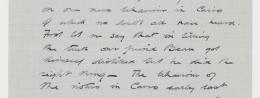 on our men's behaviour in Cairo
of which no doubt all have heard.
First let me say that in the
the truth our friend Bean got
himself disliked but he did the
right thing — The behaviour of
the rioters in Cairo early last